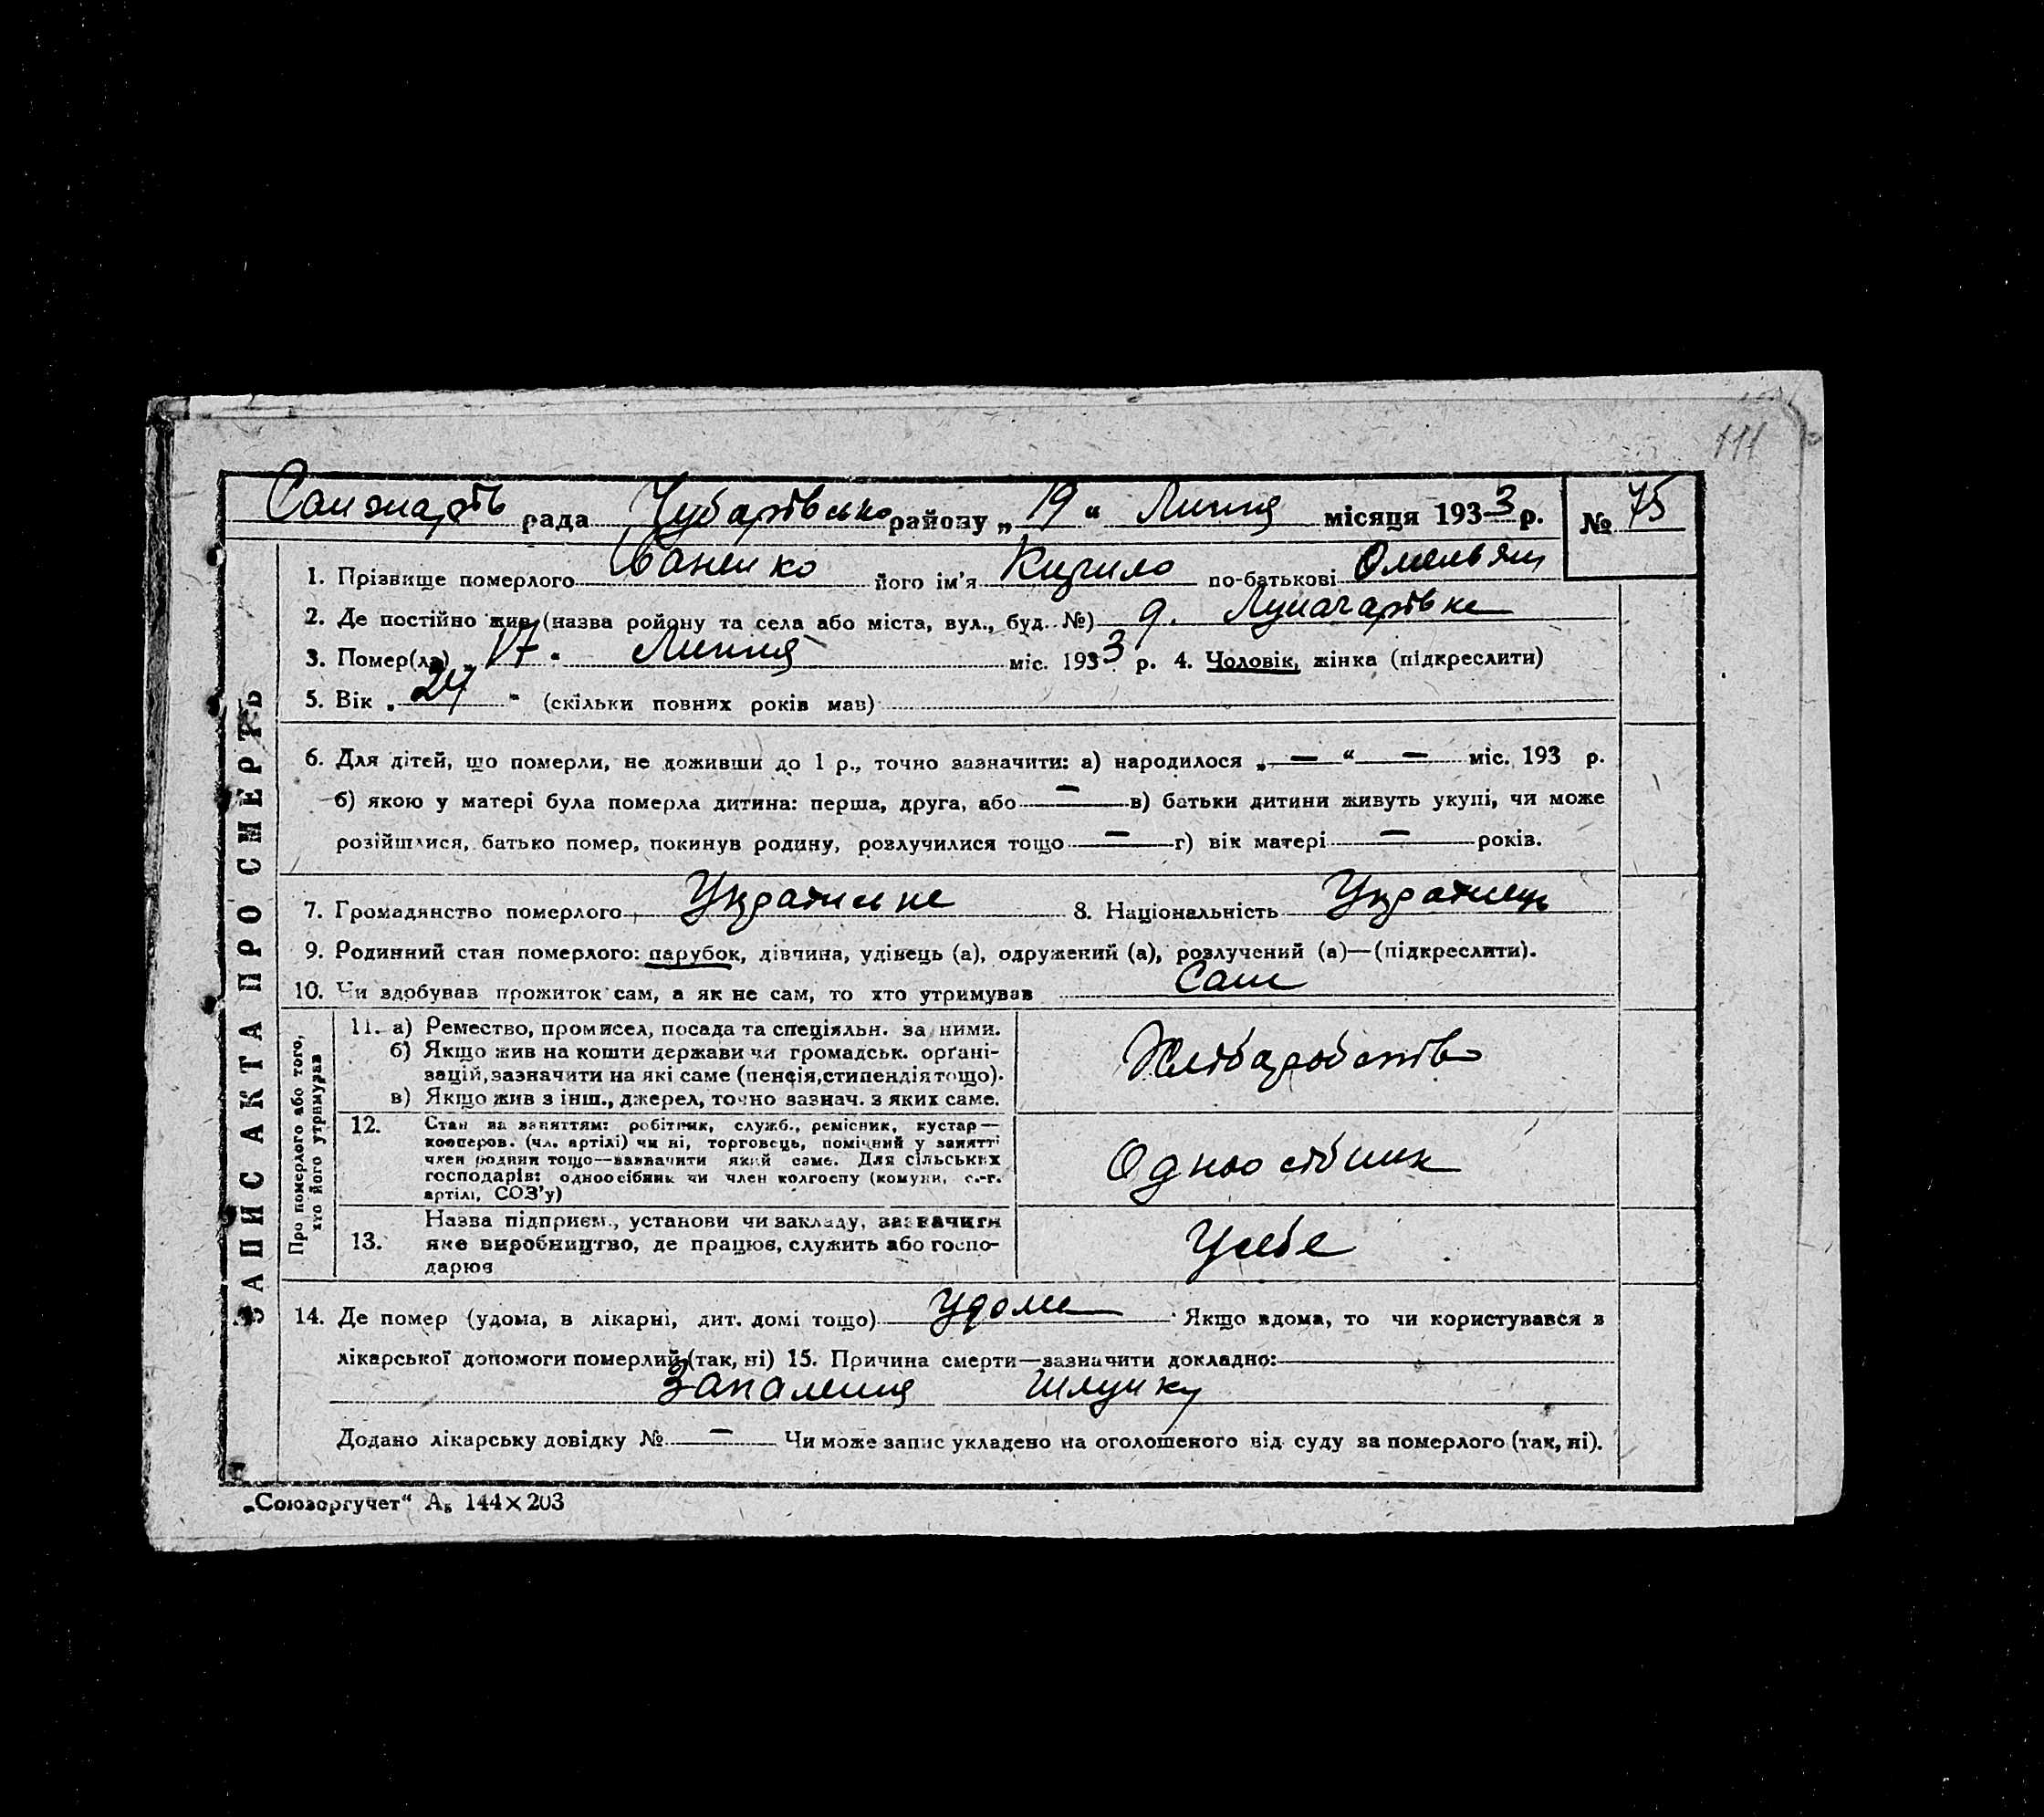 111
Санжарів рада Чубарівсько району „ 19 “ Липня місяця 1933 р. № 75
ЗАПИС АКТА ПРО СМЕРТЬ
1. Прізвище померлого Іваненко його ім'я Кирило по-батькові Омельян
2. Де постійно жив (назва ройону та села або міста, вул., буд. №) Луначарівка
3. Помер(ла) „ 17 “ Липня міс. 1933 р. 4. Чоловік, жінка (підкреслити)
5. Вік „ 24 “ (скільки повних років мав)
6. Для дітей, що померли, не доживши до 1 р., точно зазначити: а) народилося „ — “ — міс. 193 р.
б) якою у матері була померла дитина: перша, друга, або — в) батьки дитини живуть укупі, чи може
розійшлися, батько помер, покинув родину, розлучилися тощо — г) вік матері — років.
7. Громадянство померлого Українське 8. Національність Українець
9. Родинний стан померлого: парубок, дівчина, удівець (а), одружений (а), розлучений (а)—(підкреслити).
10. Чи здобував прожиток сам, а як не сам, то хто утримував Сам
Про померлого або того,
хто його утримував
11. а) Ремество, промисел, посада та спеціяльн. за ними.
б) Якщо жив на кошти держави чи громадськ. орґані-
зацій, зазначити на які саме (пенсія, стипендія тощо).
в) Якщо жив з інш., джерел, точно зазнач. з яких саме.
Хліборобство
12. Стан за заняттям: робітник, служб., ремісник, кустар—
кооперов. (чл. артілі) чи ні, торговець, помічний у занятті
член родини тощо—зазначити який саме. Для сільських
господарів: одноосібник чи член колгоспу (комуни, с.-г.
артілі, СОЗ'у)
Одноосібник
13. Назва підприєм., установи чи закладу, зазначити
яке виробництво, де працює, служить або госпо-
дарює
У себе
14. Де помер (удома, в лікарні, дит. домі тощо) удома Якщо вдома, то чи користувався з
лікарської допомоги померлий (так, ні) 15. Причина смерти—зазначити докладно:
Запалення шлунку
Додано лікарську довідку № — Чи може запис укладено на оголошеного від суду за померлого (так, ні).
„Союзоргучет“ А₅ 144×203